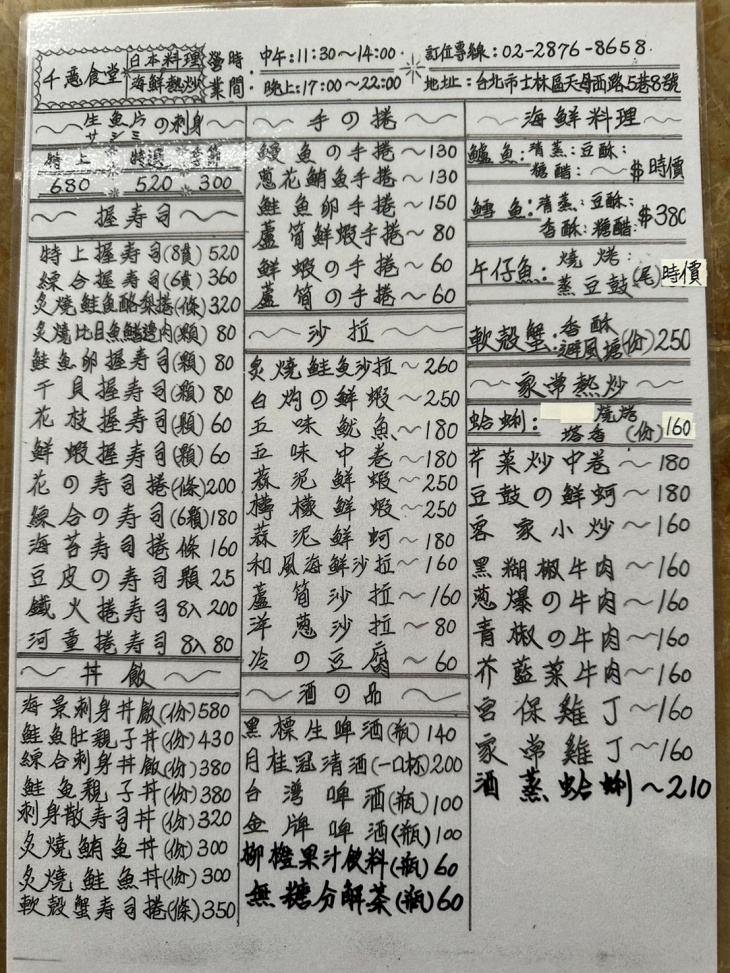 千蔥食堂
日本料理
海鮮熱炒
營業時間:
中午:11:30~14:00
晚上:17:00~22:00
訂位專線:02-2876-8658
地址:台北市士林區天母西路5巷8號
生魚片の刺身
サシミ
特上 特選
680 520 300
握寿司
特上握寿司(8貫)520
綜合握寿司(6貫)360
炙燒鮭魚酪梨捲(條)320
炙燒比目魚鰭邊肉(顆)80
鮭魚卵握寿司(顆)80
干貝握寿司(顆)80
花枝握寿司(顆)60
鮮蝦握寿司(顆)60
花の寿司捲(條)200
綜合の寿司(6顆)180
海苔寿司捲條160
豆皮の寿司顆25
鐵火捲寿司8入200
河童捲寿司8入80
丼飯
海景刺身丼飯(份)580
鮭魚肚親子丼(份)430
綜合刺身丼飯(份)380
鮭魚親子丼(份)380
刺身散寿司丼(份)320
炙燒鮪魚丼(份)300
炙燒鮭魚丼(份)300
軟殼蟹寿司捲(條)350
手の捲
鰻魚の手捲~130
蔥花鮪魚手捲~130
鮭魚卵手捲~150
蘆筍鮮蝦手捲~80
鮮蝦の手捲~60
蘆筍の手捲~60
沙拉
炙燒鮭魚沙拉~260
白灼の鮮蝦~250
五味魷魚~180
五味中卷~180
蒜泥鮮蝦~250
檸檬鮮蝦~250
蒜泥鮮蚵~180
和風海鮮沙拉~160
蘆筍沙拉~160
洋蔥沙拉~80
冷の豆腐~60
酒の品
黑標生啤酒(瓶)140
月桂冠清酒(一口杯)200
台灣啤酒(瓶)100
金牌啤酒(瓶)100
柳橙果汁飲料(瓶)60
無糖分解茶(瓶)60
海鮮料理
鱸魚:清蒸:豆酥:
糖醋:~$時價
鱈魚:清蒸:豆酥:
香酥:糖醋:$380
午仔魚:燒烤:
蒸豆鼓(尾)時價
軟殼蟹:香酥
避風塘(份)250
家常熱炒
蛤蜊:燒烤
塔香(份)160
芹菜炒中卷~180
豆鼓の鮮蚵~180
客家小炒~160
黑糊椒牛肉~160
蔥爆の牛肉~160
青椒の牛肉~160
芥藍菜牛肉~160
宮保雞丁~160
家常雞丁~160
酒蒸蛤蜊~210